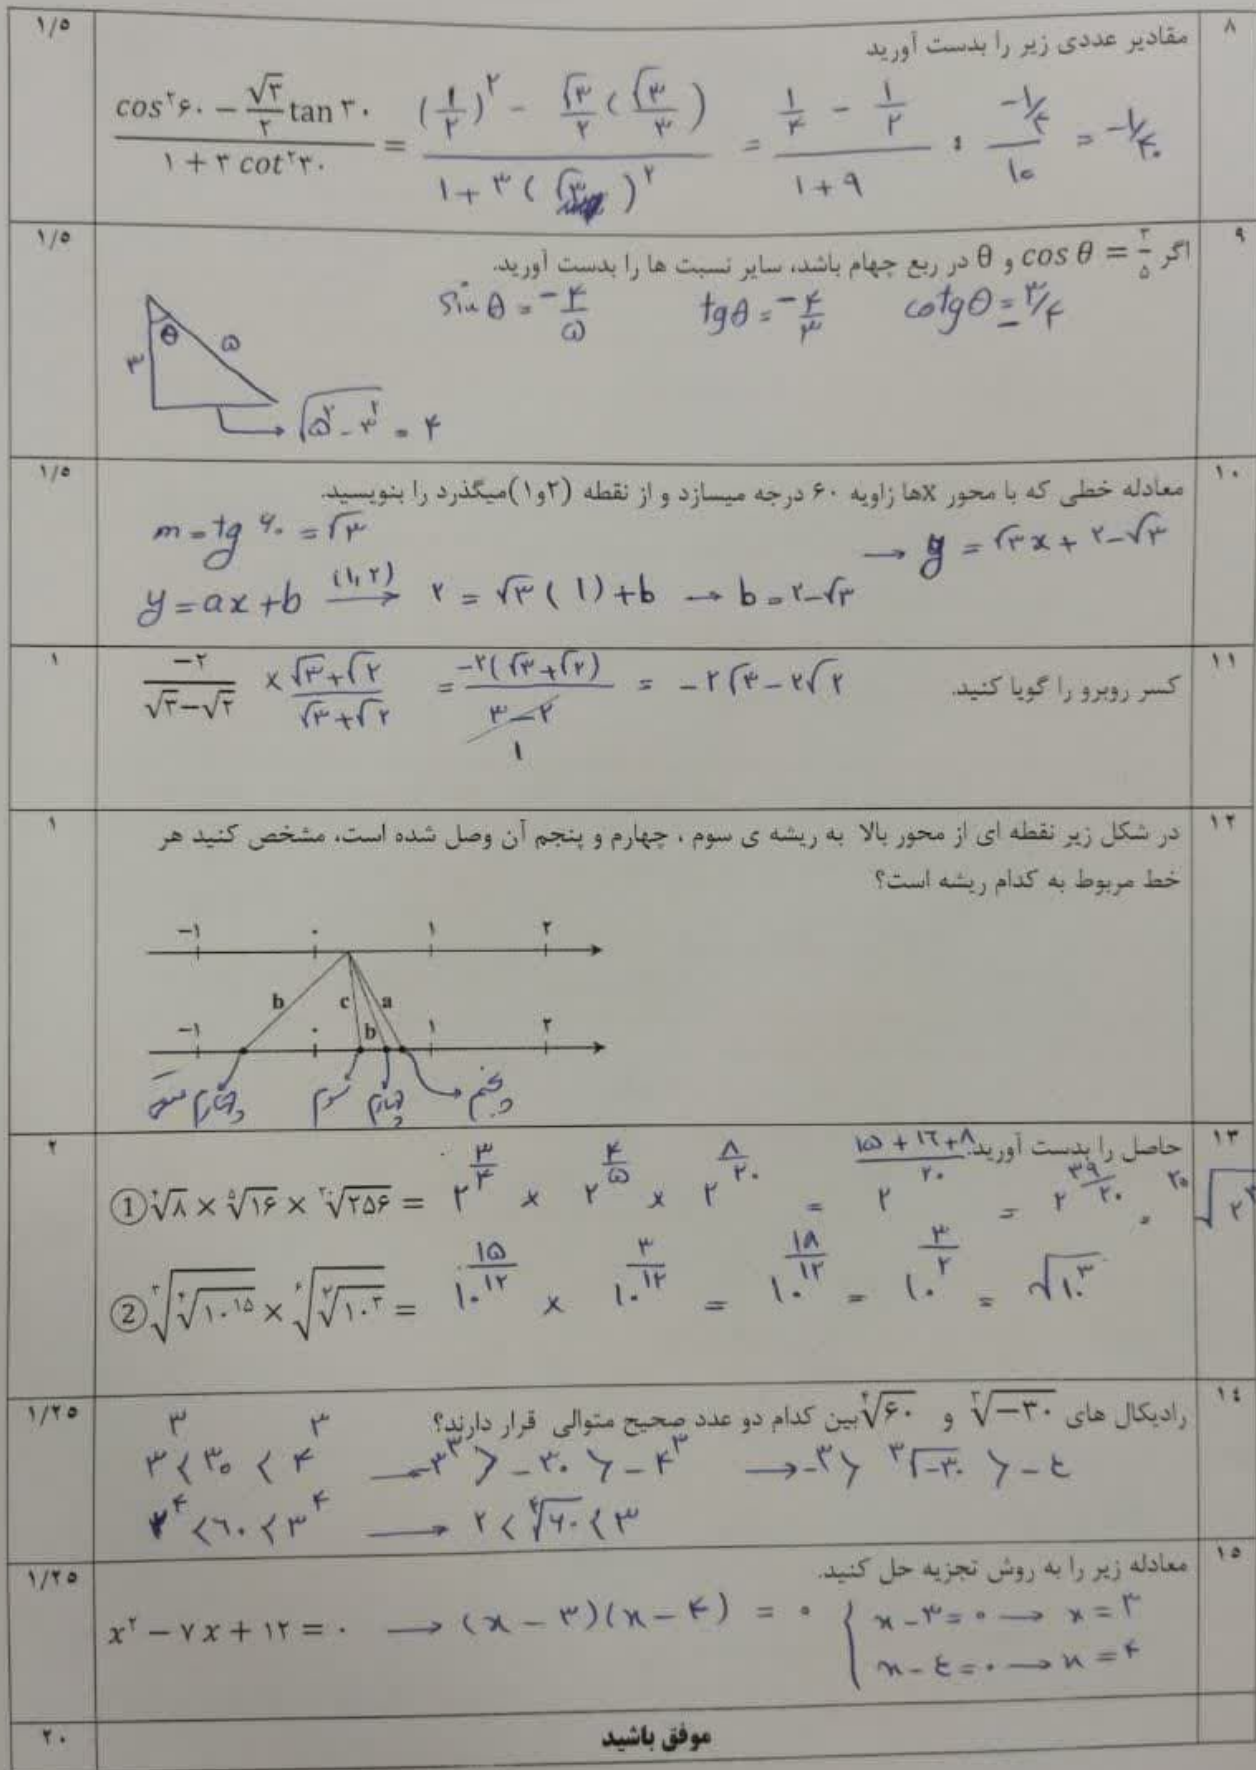 ۸ مقادیر عددی زیر را بدست آورید ۱/۵
(cos²۶۰ − (√۳/۲) tan ۳۰) / (۱ + ۳ cot²۳۰) = ((۱/۲)² − (√۳/۲)(√۳/۳)) / (۱ + ۳(√۳)²) = (۱/۴ − ۱/۲) / (۱ + ۹) : (−۱/۴) / ۱۰ = −۱/۴۰
۹ اگر cos θ = ۳/۵ و θ در ربع چهام باشد، سایر نسبت ها را بدست آورید. ۱/۵
sin θ = −۴/۵ tgθ = −۴/۳ cotgθ = −۳/۴
θ ۵
۳
√(۵² − ۳²) = ۴
۱۰ معادله خطی که با محور xها زاویه ۶۰ درجه میسازد و از نقطه (۲و۱)میگذرد را بنویسید. ۱/۵
m = tg ۶۰ = √۳ → y = √۳x + ۲−√۳
y = ax + b →(۱,۲) ۲ = √۳(۱) + b → b = ۲−√۳
۱۱ کسر روبرو را گویا کنید. ۱
−۲/(√۳−√۲) × (√۳+√۲)/(√۳+√۲) = −۲(√۳+√۲)/(۳−۲) = −۲√۳−۲√۲
۱
۱۲ در شکل زیر نقطه ای از محور بالا به ریشه ی سوم ، چهارم و پنجم آن وصل شده است، مشخص کنید هر ۱
خط مربوط به کدام ریشه است؟
−۱ ۰ ۱ ۲
b c a
b
−۱ ۰ ۱ ۲
چهارم سوم چهارم پنجم
۱۳ حاصل را بدست آورید. ۲
① ⁴√۸ × ⁵√۱۶ × ²⁰√۲۵۶ = ۲^(۳/۴) × ۲^(۴/۵) × ۲^(۸/۲۰) = ۲^((۱۵+۱۶+۸)/۲۰) = ۲^(۳۹/۲۰) =
② ³√(⁴√(۱۰^۱۵)) × ⁶√(²√(۱۰^۳)) = ۱۰^(۱۵/۱۲) × ۱۰^(۳/۱۲) = ۱۰^(۱۸/۱۲) = ۱۰^(۳/۲) = √(۱۰³)
۱٤ رادیکال های ³√−۳۰ و ⁴√۶۰ بین کدام دو عدد صحیح متوالی قرار دارند؟ ۱/۲۵
۳³ < ۳۰ < ۴³ → −۳³ > −۳۰ > −۴³ → −۳ > ³√−۳۰ > −٤
۲⁴ < ۶۰ < ۳⁴ → ۲ < ⁴√۶۰ < ۳
۱۵ معادله زیر را به روش تجزیه حل کنید. ۱/۲۵
x² − ۷x + ۱۲ = ۰ → (x − ۳)(x − ۴) = ۰ { x − ۳ = ۰ → x = ۳
x − ٤ = ۰ → x = ۴
موفق باشید ۲۰